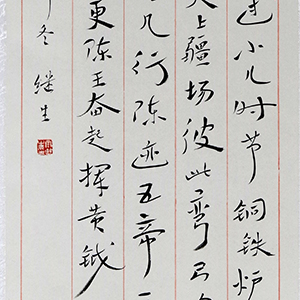 过小儿时节铜铁炉
上疆场彼此弯弓
几行陈迹五帝
更陈王奋起挥黄钺
冬 继生